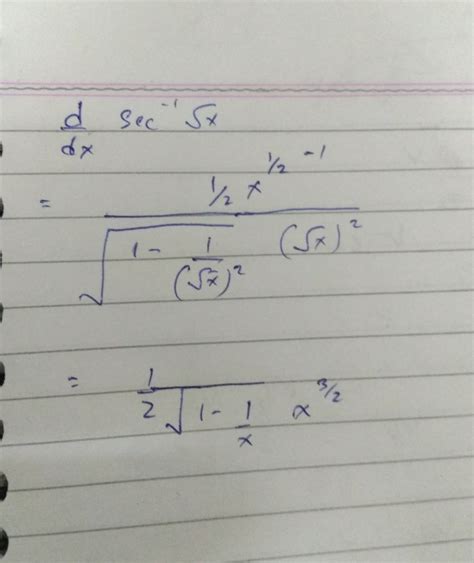 d/dx sec⁻¹ √x
= (1/2 x^(1/2 - 1)) / (√(1 - 1/(√x)²) (√x)²)
= 1 / (2 √(1 - 1/x) x^(3/2))